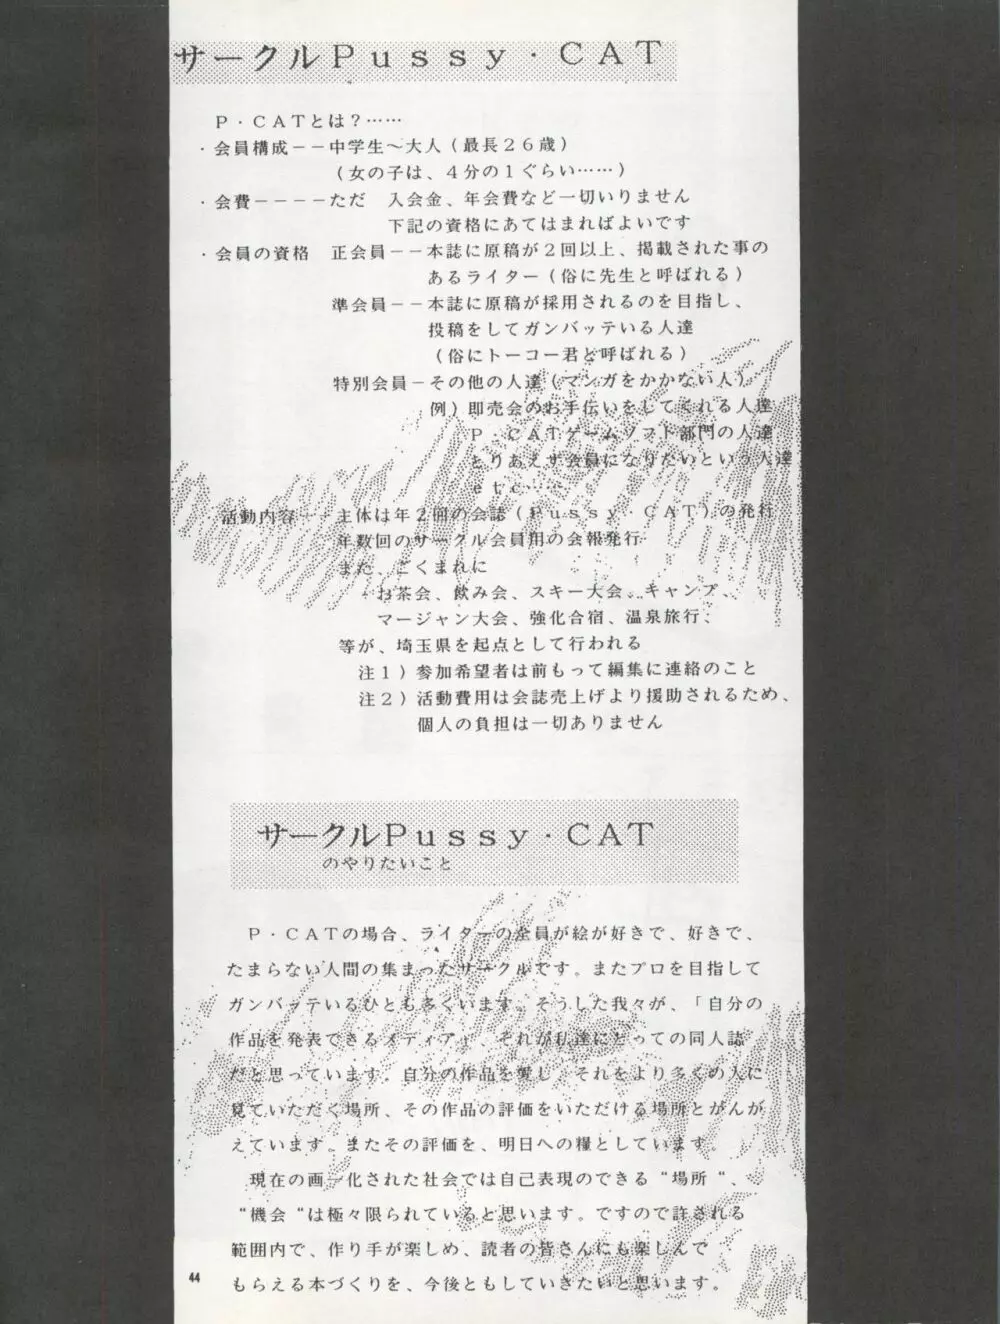 サークルＰｕｓｓｙ・ＣＡＴ
Ｐ・ＣＡＴとは？……
・会員構成－－中学生～大人（最長２６歳）
（女の子は、４分の１ぐらい……）
・会費－－－－ただ　入会金、年会費など一切いりません
下記の資格にあてはまればよいです
・会員の資格　正会員－－本誌に原稿が２回以上、掲載された事の
あるライター（俗に先生と呼ばれる）
準会員－－本誌に原稿が採用されるのを目指し、
投稿をしてガンバッテいる人達
（俗にトーコー君と呼ばれる）
特別会員－その他の人達（マンガをかかない人）
例）即売会のお手伝いをしてくれる人達
Ｐ・ＣＡＴゲームソフト部門の人達
とりあえず会員になりたいという人達
ｅｔｃ……
活動内容－－主体は年２回の会誌（Ｐｕｓｓｙ・ＣＡＴ）の発行
年数回のサークル会員用の会報発行
また、ごくまれに
お茶会、飲み会、スキー大会、キャンプ、
マージャン大会、強化合宿、温泉旅行、
等が、埼玉県を起点として行われる
注１）参加希望者は前もって編集に連絡のこと
注２）活動費用は会誌売上げより援助されるため、
個人の負担は一切ありません
サークルＰｕｓｓｙ・ＣＡＴ
のやりたいこと
Ｐ・ＣＡＴの場合、ライターの全員が絵が好きで、好きで、
たまらない人間の集まったサークルです。またプロを目指して
ガンバッテいるひとも多くいます。そうした我々が、「自分の
作品を発表できるメディア」、それが私達にとっての同人誌
だと思っています。自分の作品を愛し、それをより多くの人に
見ていただく場所、その作品の評価をいただける場所とがんが
えています。またその評価を、明日への糧としています。
現在の画一化された社会では自己表現のできる“場所“、
“機会“は極々限られていると思います。ですので許される
範囲内で、作り手が楽しめ、読者の皆さんにも楽しんで
もらえる本づくりを、今後ともしていきたいと思います。
44